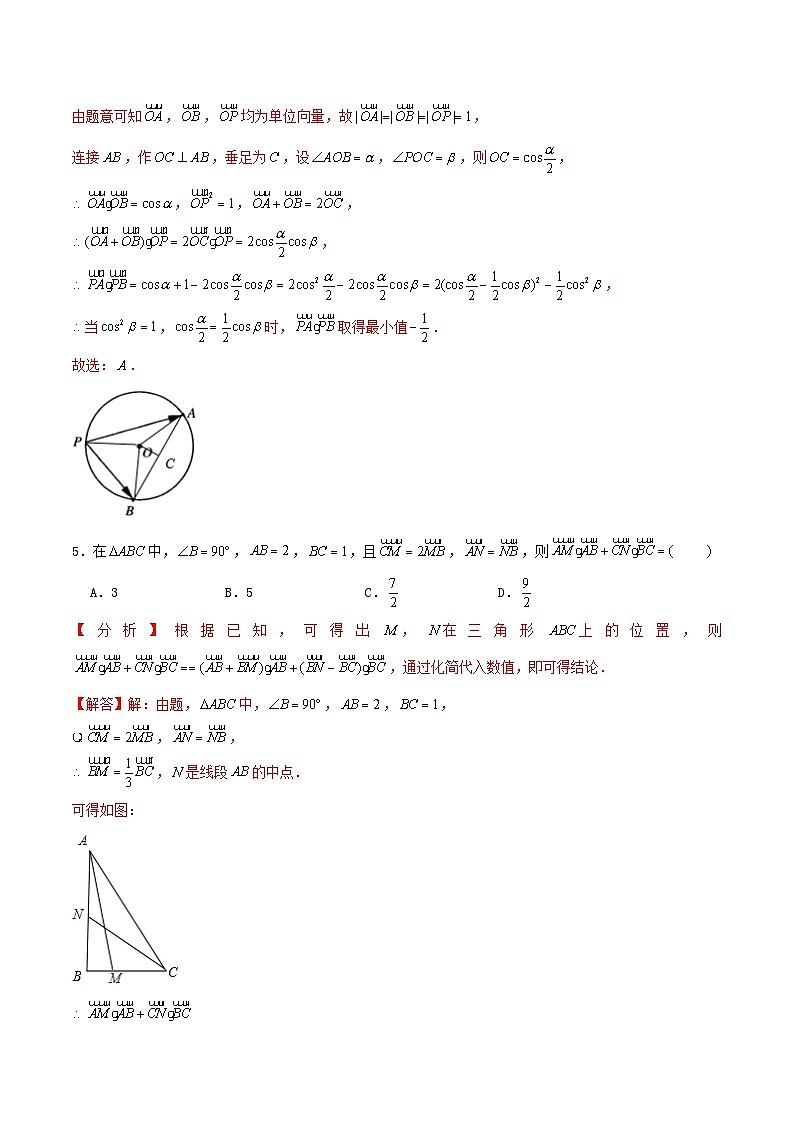 由题意可知OA，OB，OP均为单位向量，故|OA|=|OB|=|OP|=1，
连接AB，作OC⊥AB，垂足为C，设∠AOB=α，∠POC=β，则OC=cos α/2，
∴ OAgOB=cosα，OP²=1，OA+OB=2OC，
∴(OA+OB)gOP=2OCgOP=2cos α/2 cosβ，
∴ PAgPB=cosα+1-2cos α/2 cosβ=2cos² α/2-2cos α/2 cosβ=2(cos α/2-1/2 cosβ)²-1/2 cos²β，
∴当cos²β=1，cos α/2=1/2 cosβ时，PAgPB取得最小值-1/2．
故选：A．
A
P
O
C
B
5．在ΔABC中，∠B=90°，AB=2，BC=1，且CM=2MB，AN=NB，则AMgAB+CNgBC=( )
A．3 B．5 C．7/2 D．9/2
【分析】根据已知，可得出M，N在三角形ABC上的位置，则
AMgAB+CNgBC==(AB+BM)gAB+(BN-BC)gBC，通过化简代入数值，即可得结论．
【解答】解：由题，ΔABC中，∠B=90°，AB=2，BC=1，
Q CM=2MB，AN=NB，
∴ BM=1/3 BC，N是线段AB的中点．
可得如图：
A
N
B M C
∴ AMgAB+CNgBC